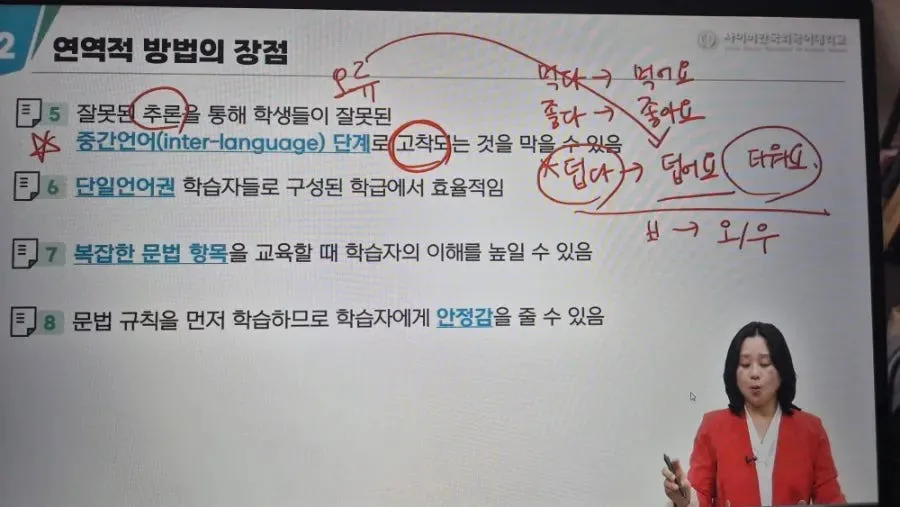 2 연역적 방법의 장점
사이버한국외국어대학교
오류
먹다 → 먹어요
좋다 → 좋아요
* 덥다 → 덥어요 더워요.
ㅂ → 오/우
5 잘못된 추론을 통해 학생들이 잘못된
중간언어(inter-language) 단계로 고착되는 것을 막을 수 있음
6 단일언어권 학습자들로 구성된 학급에서 효율적임
7 복잡한 문법 항목을 교육할 때 학습자의 이해를 높일 수 있음
8 문법 규칙을 먼저 학습하므로 학습자에게 안정감을 줄 수 있음